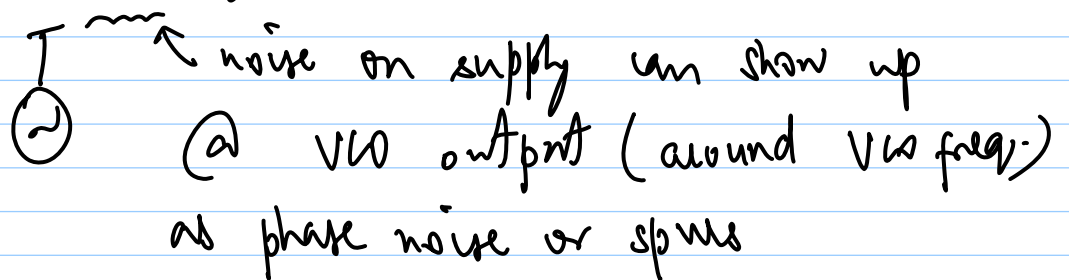 noise on supply can show up
@ VCO output (around VCO freq.)
as phase noise or spurs